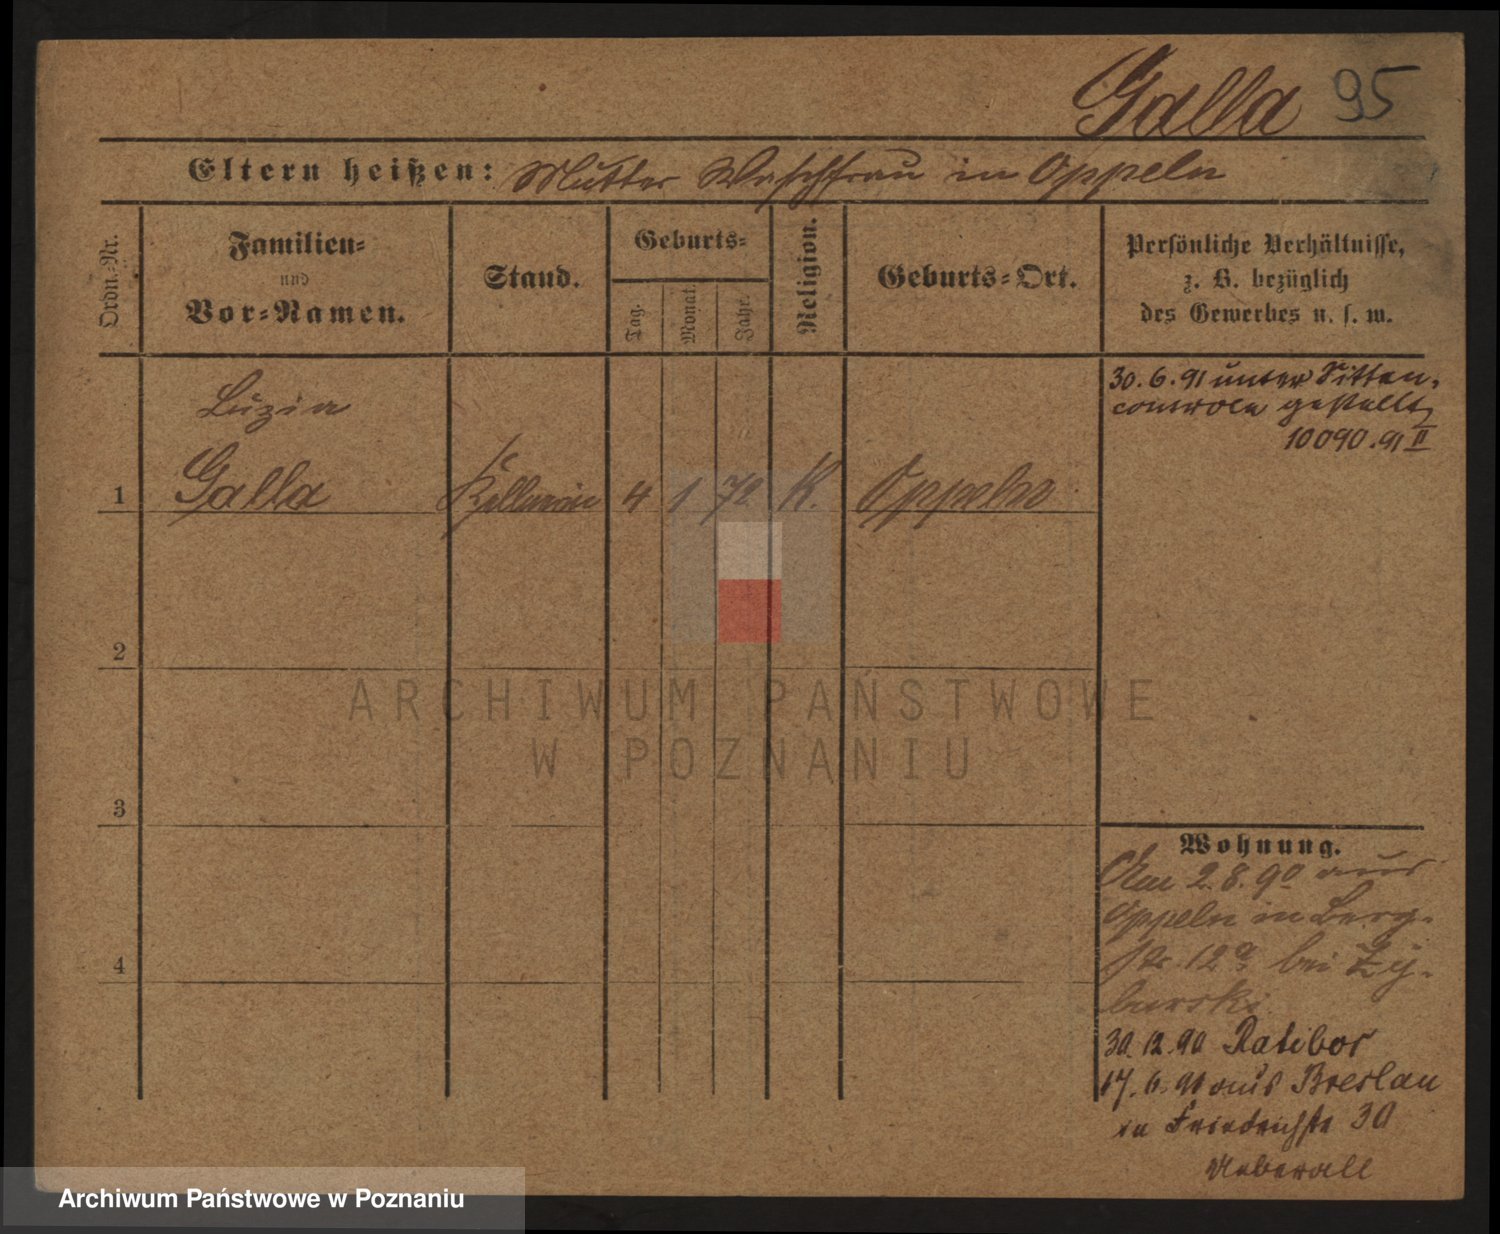 Galla 95
Eltern heißen: Mutter Waschfrau in Oppeln
Ordn.-Nr.
Familien-
und
Vor-Namen.
Stand.
Geburts-
Tag.
Monat.
Jahr.
Religion.
Geburts-Ort.
Persönliche Verhältnisse,
z. B. bezüglich
des Gewerbes u. s. w.
30.6.91 unter Sitten-
controle gestellt
10090.91 II
Luzia
1 Galla Kellnerin 4 1 72 K. Oppeln
2
ARCHIWUM PAŃSTWOWE
W POZNANIU
3
Wohnung.
Am 2.8.90 aus
Oppeln in Berg-
str. 12a bei Zy-
burski
4
30.12.90 Ratibor
17.6.91 aus Breslau
in Friedrichstr 30
Ueberall
Archiwum Państwowe w Poznaniu